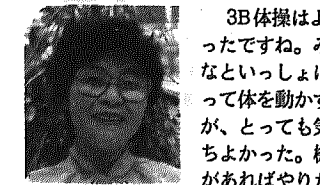 3B体操はよ
ったですね。み
なといっしょに
って体を動かす
が、とっても気
ちよかった。機
があればやりた